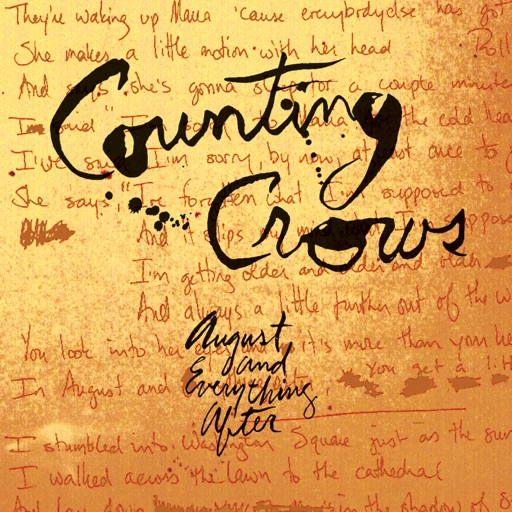 They're waking up Maria 'cause everybodyelse has got
She makes a little motion with her head
And says she's gonna a couple minute
I said " I'm sorry to Maria for the cold hea
I've said I'm sorry, by now, at least once to
She says, "I've forgotten what I'm supposed to
And it slips my mind I'm suppose
I'm getting older and older and older
And always a little further out of the w
You look into her eyes and it's more than you he
In August and Everything after You get a litt
I stumbled into Washington Square just as the sun
I walked across the lawn to the cathedral
And lay down in the shadow of S
Counting
Crows
August
and
Everything
After